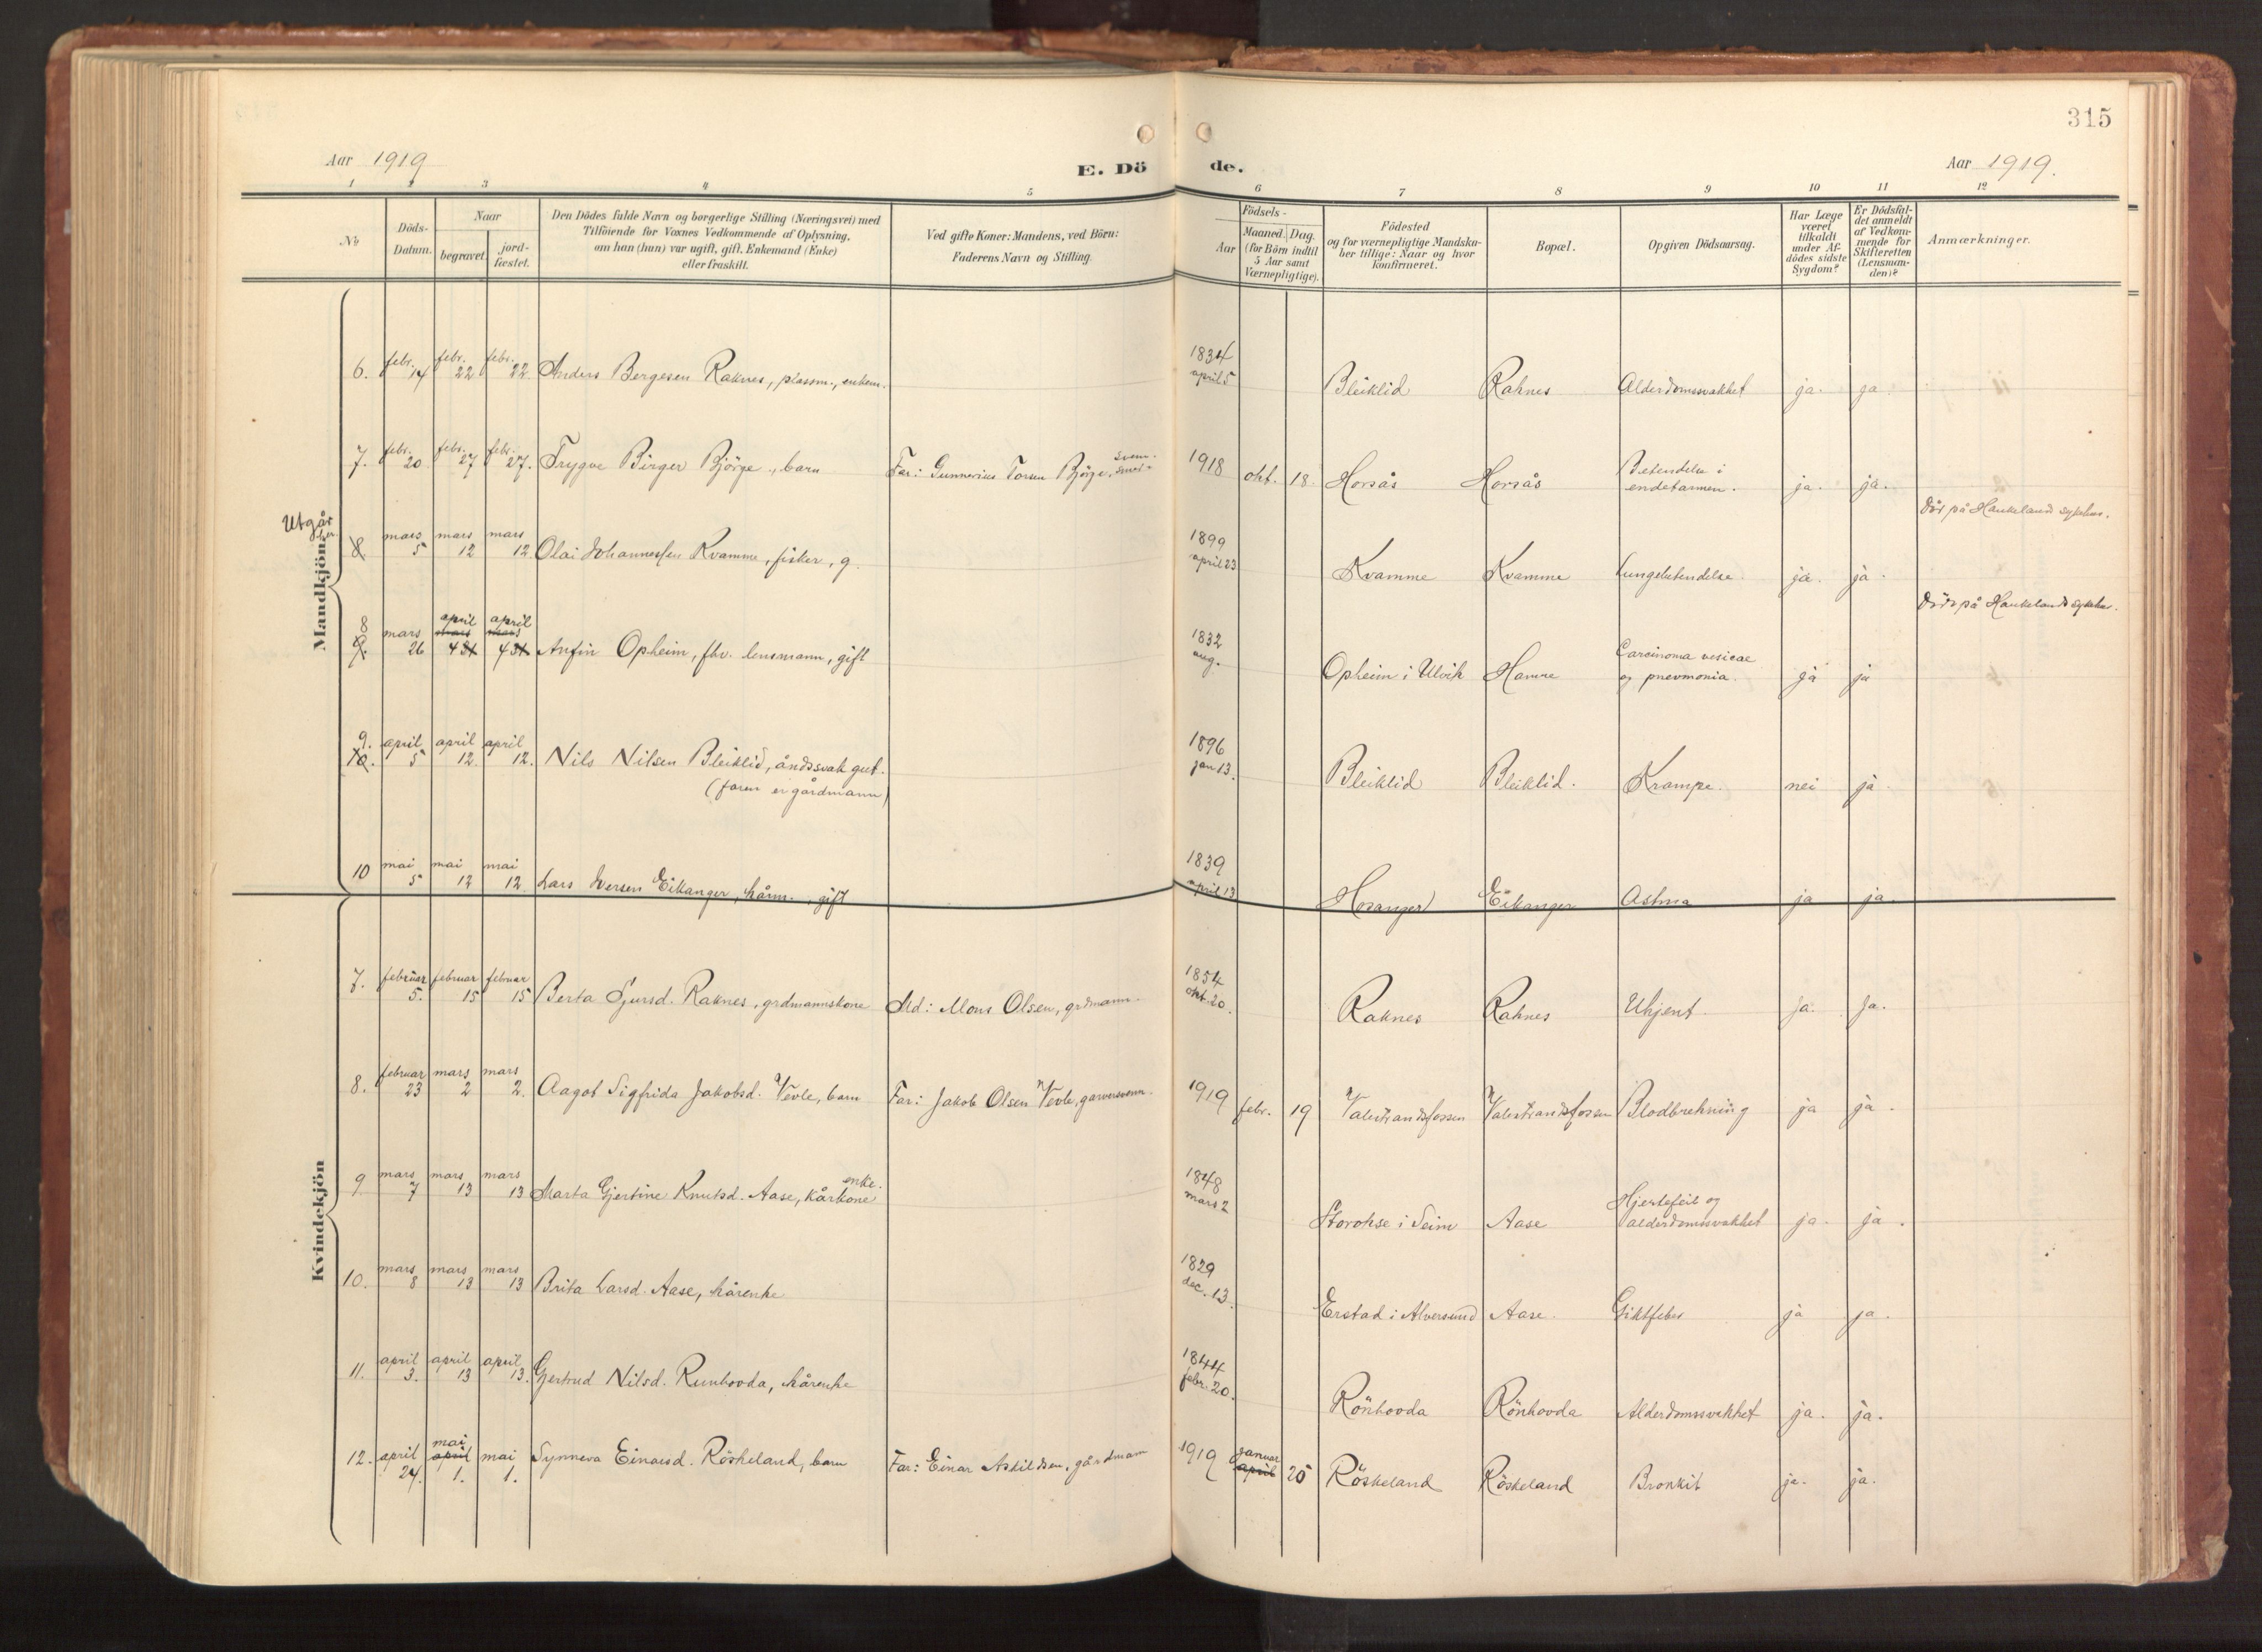 315
Aar 1919
E. Dö
de.
Aar 1919.
1 2 3 4 5 6 7 8 9 10 11 12
No
Döds-
Datum.
Naar
begravet.
jord-
fæstet.
Den Dödes fulde Navn og borgerlige Stilling (Næringsvei) med
Tilföiende for Voxnes Vedkommende af Oplysning,
om han (hun) var ugift, gift, Enkemand (Enke)
eller fraskilt.
Ved gifte Koner: Mandens, ved Börn:
Faderens Navn og Stilling.
Födsels-
Aar
Maaned. Dag.
(for Börn indtil
5 Aar samt
Værnepligtige).
Födested
og for værnepligtige Mandska-
ber tillige: Naar og hvor
konfirmeret.
Bopæl.
Opgiven Dödsaarsag.
Har Læge
været
tilkaldt
under Af-
dödes sidste
Sygdom?
Er Dödsfal-
det anmeldt
af Vedkom-
mende for
Skifteretten
(Lensman-
den)?
Anmærkninger.
Mandkjön.
6. febr. 14 febr. 22 febr. 22. Anders Bergesen Raknes, plassm., enkem. 1834 april 5 Bleiklid Raknes Alderdomssvakhet ja. ja
7. febr. 20 febr. 27 febr. 27. Trygve Birger Björge, barn Far: Gunnerius Torsen Björge, 1918 okt. 18 Horsås Horsås Betendelse i
endetarmen. ja. ja.
Utgår
her.
8 mars 5 mars 12 mars 12 Olai Johannessen Kvamme, fisker, g. 1899 april 23 Kvamme Kvamme Lungebetendelse. ja. ja. Död på Haukeland sykehus.
8
9. mars 26 april mars 4 31 april mars 4 31 Anfin Opheim, fhv. lensmann, gift 1832 aug. Opheim i Ulvik Hamre Carcinoma vesicae
og pnevmonia. ja ja Död på Haukelands sykehus.
9.
10. april 5 april 12. april 12. Nils Nilsen Bleiklid, åndssvak gut.
(faren er gårdmann) 1896 jan 13. Bleiklid Bleiklid. Krampe. nei ja.
10 mai 5 mai 12 mai 12 Lars Iversen Eikanger, kårm., gift 1839 april 13 Hosanger Eikanger Astma ja ja.
Kvindekjön
7. februar 5. februar 15 februar 15 Berta Sjursd. Raknes, grdmannskone Md: Mons Olsen, grdmann. 1854 okt. 20. Raknes Raknes Ukjent. Ja. Ja.
8. februar 23 mars 2 mars 2. Aagot Sigfrida Jakobsd. Vevle, barn Far: Jakob Olsen Vevle, garversvenn. 1919 febr. 19 Valestrandsfossen Valestrandsfossen Blodbrekning ja ja.
9 mars 7 mars 13 mars 13 Marta Gjertine Knutsd. Aase, kårkone enke. 1848 mars 2 Storokse i Seim Aase Hjertefeil og
alderdomssvakhet ja. ja.
10. mars 8 mars 13 mars 13 Brita Larsd. Aase, kårenke 1829 dec. 13. Erstad i Alversund Aase. Giktfeber ja ja.
11. april 3. april 13 april 13. Gjertrud Nilsd. Runhovda, kårenke 1844 febr. 20. Rönhovda Rönhovda Alderdomssvakhet ja. ja.
12. april 24. mai april 1. mai 1. Synneva Einarsd. Röskeland, barn Far: Einar Askildsen, gårdmann 1919 januar april 25 Röskeland Röskeland Bronkit ja. ja.